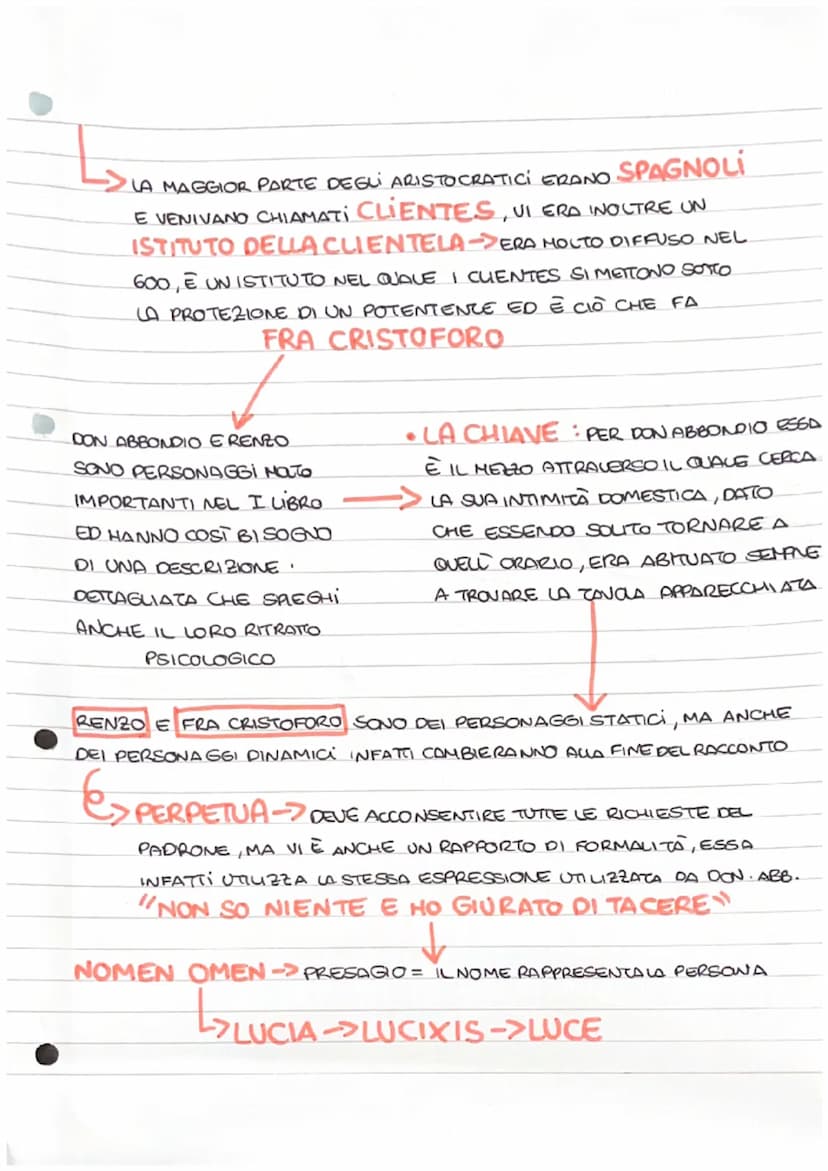 LA MAGGIOR PARTE DEGLI ARISTOCRATICI ERANO SPAGNOLI
E VENIVANO CHIAMATI CLIENTES, VI ERA INOLTRE UN
ISTITUTO DELLA CLIENTELA -> ERA MOLTO DIFFUSO NEL
600, È UN ISTITUTO NEL QUALE I CLIENTES SI METTONO SOTTO
LA PROTEZIONE DI UN POTENTENTE ED È CIÒ CHE FA
FRA CRISTOFORO
DON ABBONDIO E RENZO
SONO PERSONAGGI MOLTO
IMPORTANTI NEL I LIBRO
ED HANNO COSÌ BISOGNO
DI UNA DESCRIZIONE
DETTAGLIATA CHE SPIEGHI
ANCHE IL LORO RITRATTO
PSICOLOGICO
• LA CHIAVE : PER DON ABBONDIO ESSA
È IL MEZZO ATTRAVERSO IL QUALE CERCA
LA SUA INTIMITÀ DOMESTICA, DATO
CHE ESSENDO SOLITO TORNARE A
QUELL' ORARIO, ERA ABITUATO SEMPRE
A TROVARE LA TAVOLA APPARECCHIATA
RENZO E FRA CRISTOFORO SONO DEI PERSONAGGI STATICI, MA ANCHE
DEI PERSONAGGI DINAMICI INFATTI CAMBIERANNO ALLA FINE DEL RACCONTO
PERPETUA -> DEVE ACCONSENTIRE TUTTE LE RICHIESTE DEL
PADRONE, MA VI È ANCHE UN RAPPORTO DI FORMALITÀ, ESSA
INFATTI UTILIZZA LA STESSA ESPRESSIONE UTILIZZATA DA DON. ABB.
"NON SO NIENTE E HO GIURATO DI TACERE"
NOMEN OMEN -> PRESAGIO = IL NOME RAPPRESENTA LA PERSONA
LUCIA -> LUCIXIS -> LUCE